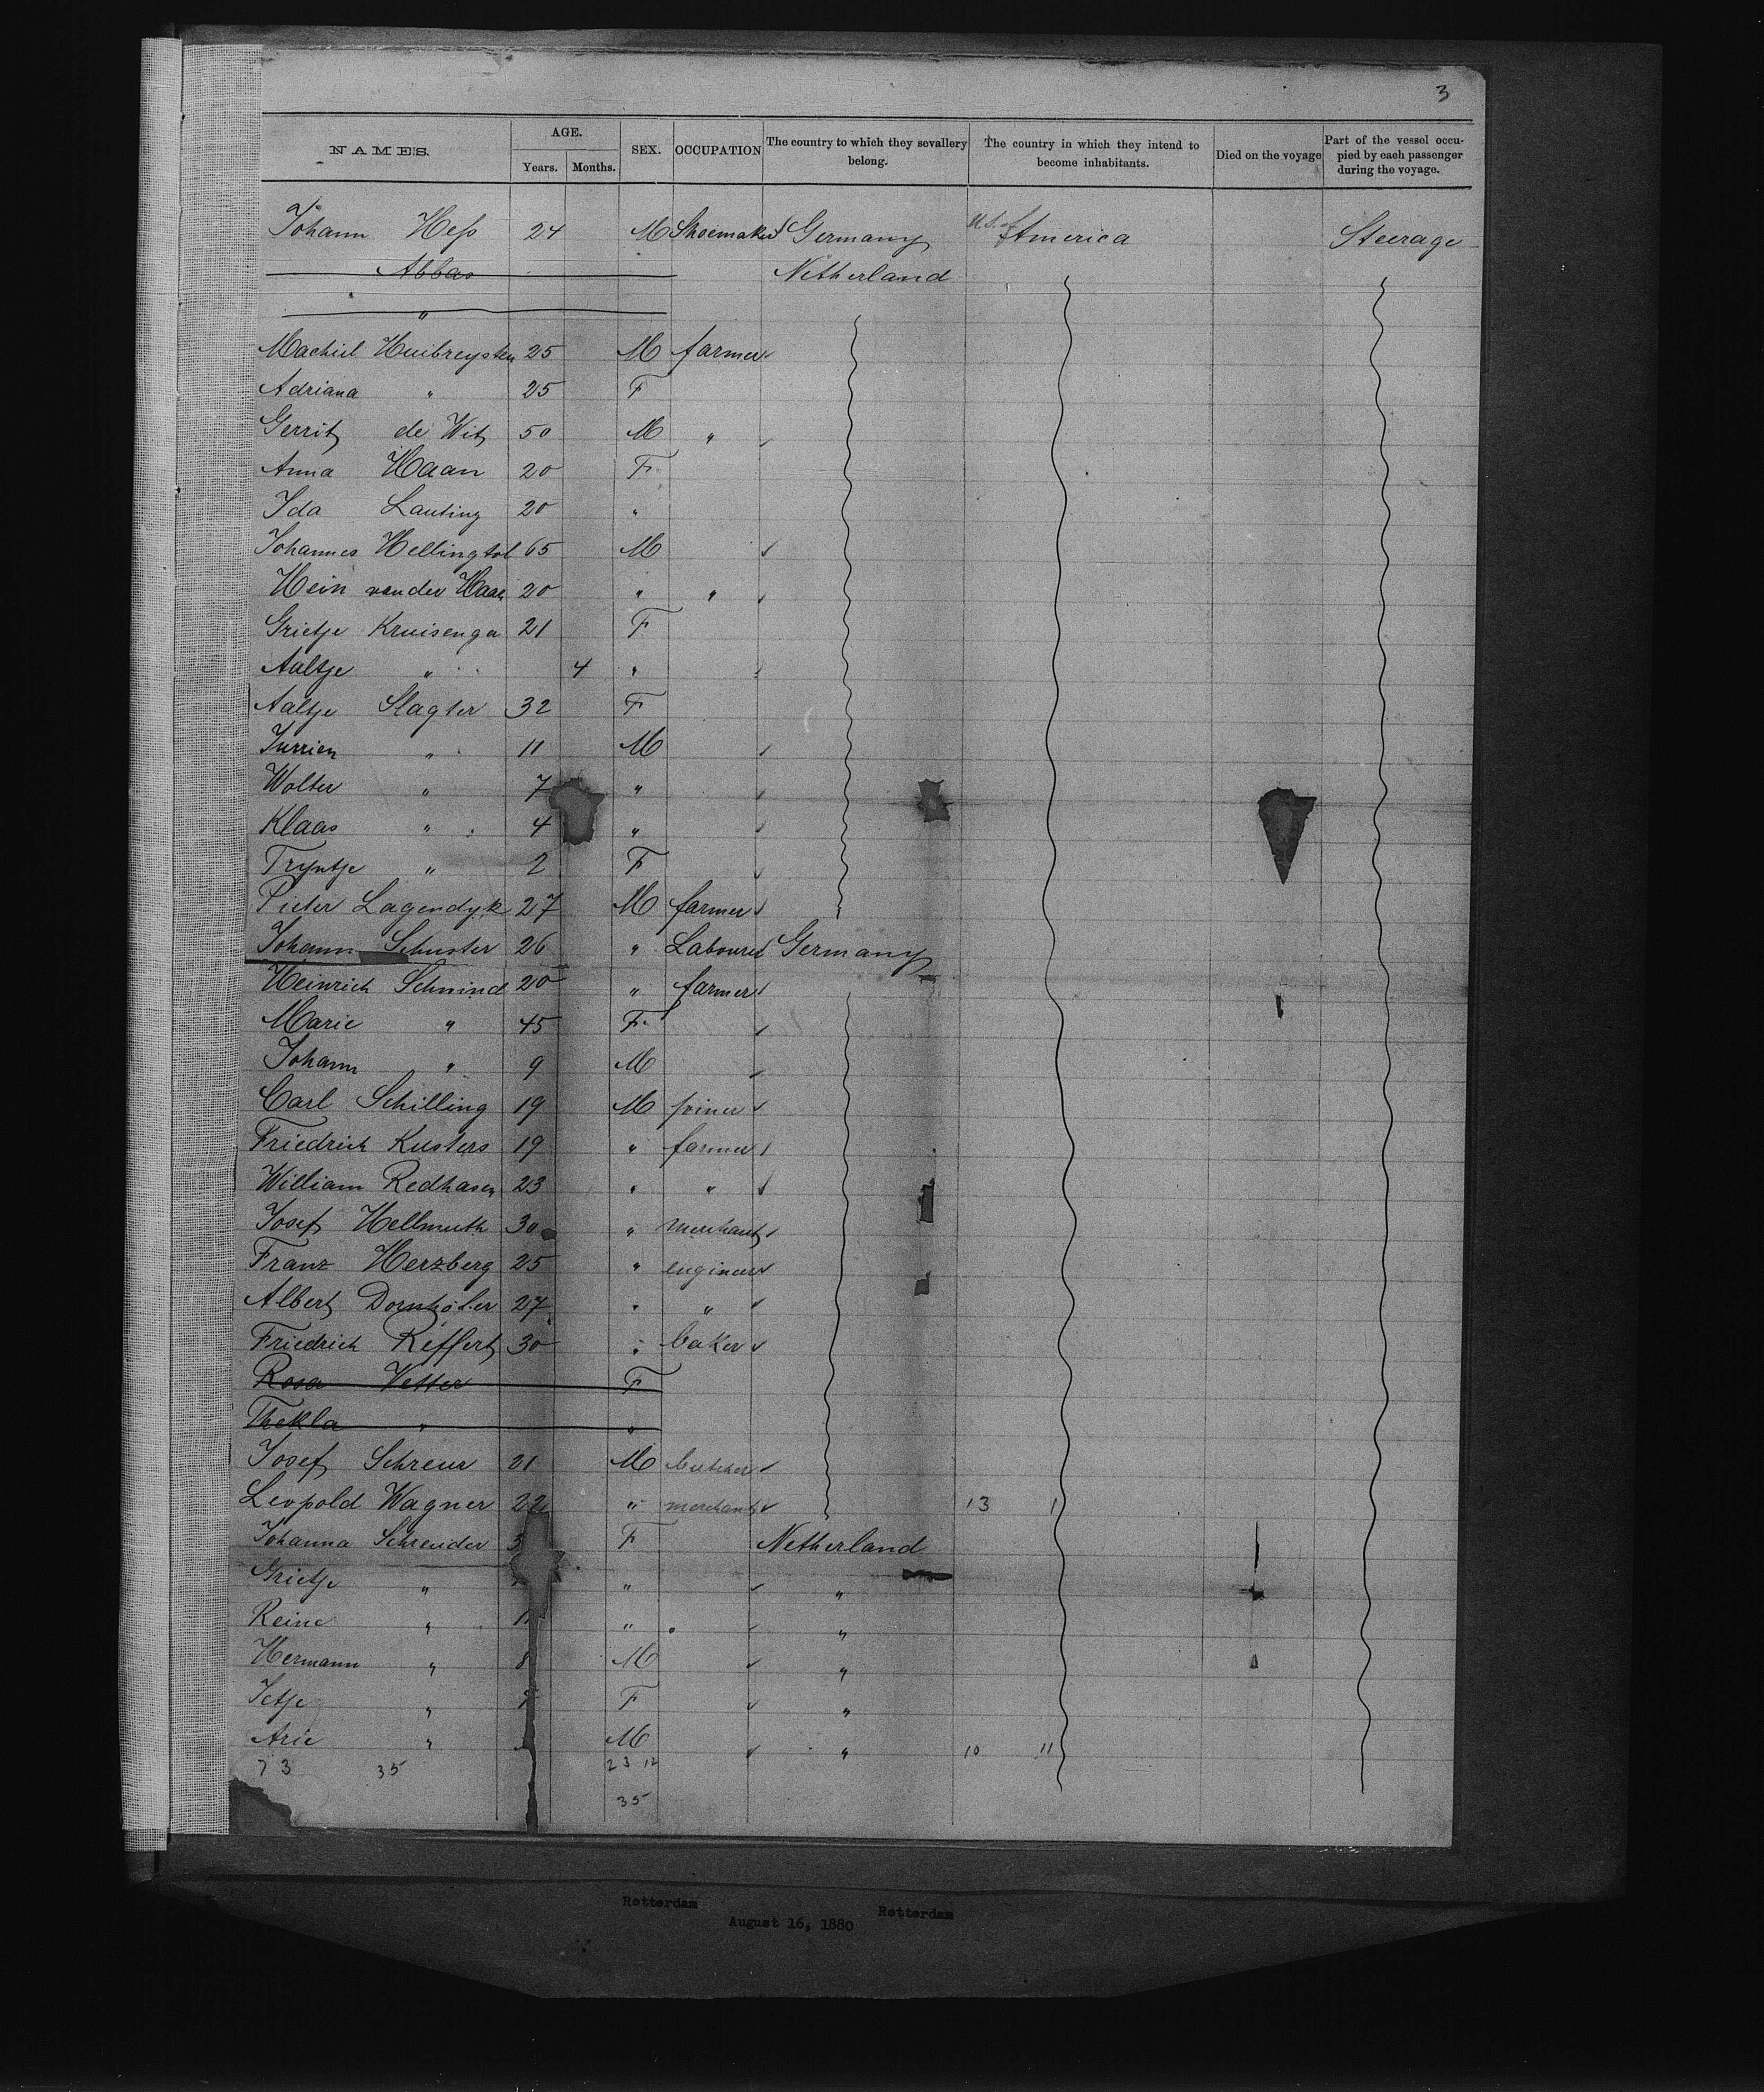 3
NAMES. AGE. Years. Months. SEX. OCCUPATION The country to which they sevallery belong. The country in which they intend to become inhabitants. Died on the voyage Part of the vessel occupied by each passenger during the voyage.
Johann Heſs 24 M Shoemaker Germany U.S. of America Steerage
Abbas Netherland
"
Machiel Huibreytsen 25 M farmer
Adriana " 25 F
Gerrit de Wit 50 M "
Anna Haan 20 F
Ida Lanting 20 "
Johannes Hellingtol 65 M
Hein van der Haar 20 " "
Grietje Kruisenga 21 F
Aaltje " 4 "
Aaltje Slagter 32 F
Jurrien " 11 M
Wolter " 7 "
Klaas " 4 "
Tryntje " 2 F
Pieter Lagendyk 27 M farmer
Johann Schuster 26 " Labourer Germany
Heinrich Schmind 20 " farmer
Marie " 45 F
Johann " 9 M
Carl Schilling 19 M joiner
Friedrich Kusters 19 " farmer
William Redhasen 23 " "
Josef Hellmuth 30 " merchant
Franz Herzberg 25 " engineer
Albert 27 " "
Friedrich Reffert 30 " baker
Rosa Vetter F
Thekla " "
Josef Schreur 21 M butcher
Leopold Wagner 22 " merchant 13 1
Johanna Schreuder 3 F Netherland
Grietje " " "
Reine " 11 " "
Hermann " 8 M "
Jetje " 7 F "
Arie " M " 10 11
73 35 23 12
35
Rotterdam Rotterdam
August 16, 1880